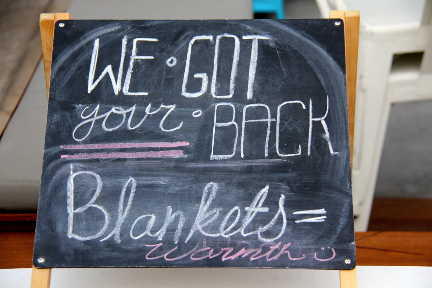 WE • GOT
your • BACK
Blankets =
warmth :)